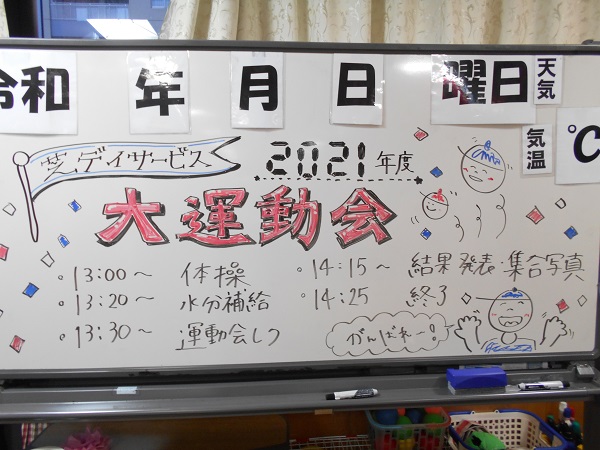 令和 年 月 日 曜日 天気
気温 ℃
芝デイサービス 2021年度
大運動会
・13:00～ 体操
・13:20～ 水分補給
・13:30～ 運動会レク
・14:15～ 結果発表・集合写真
・14:25 終了
がんばれー!